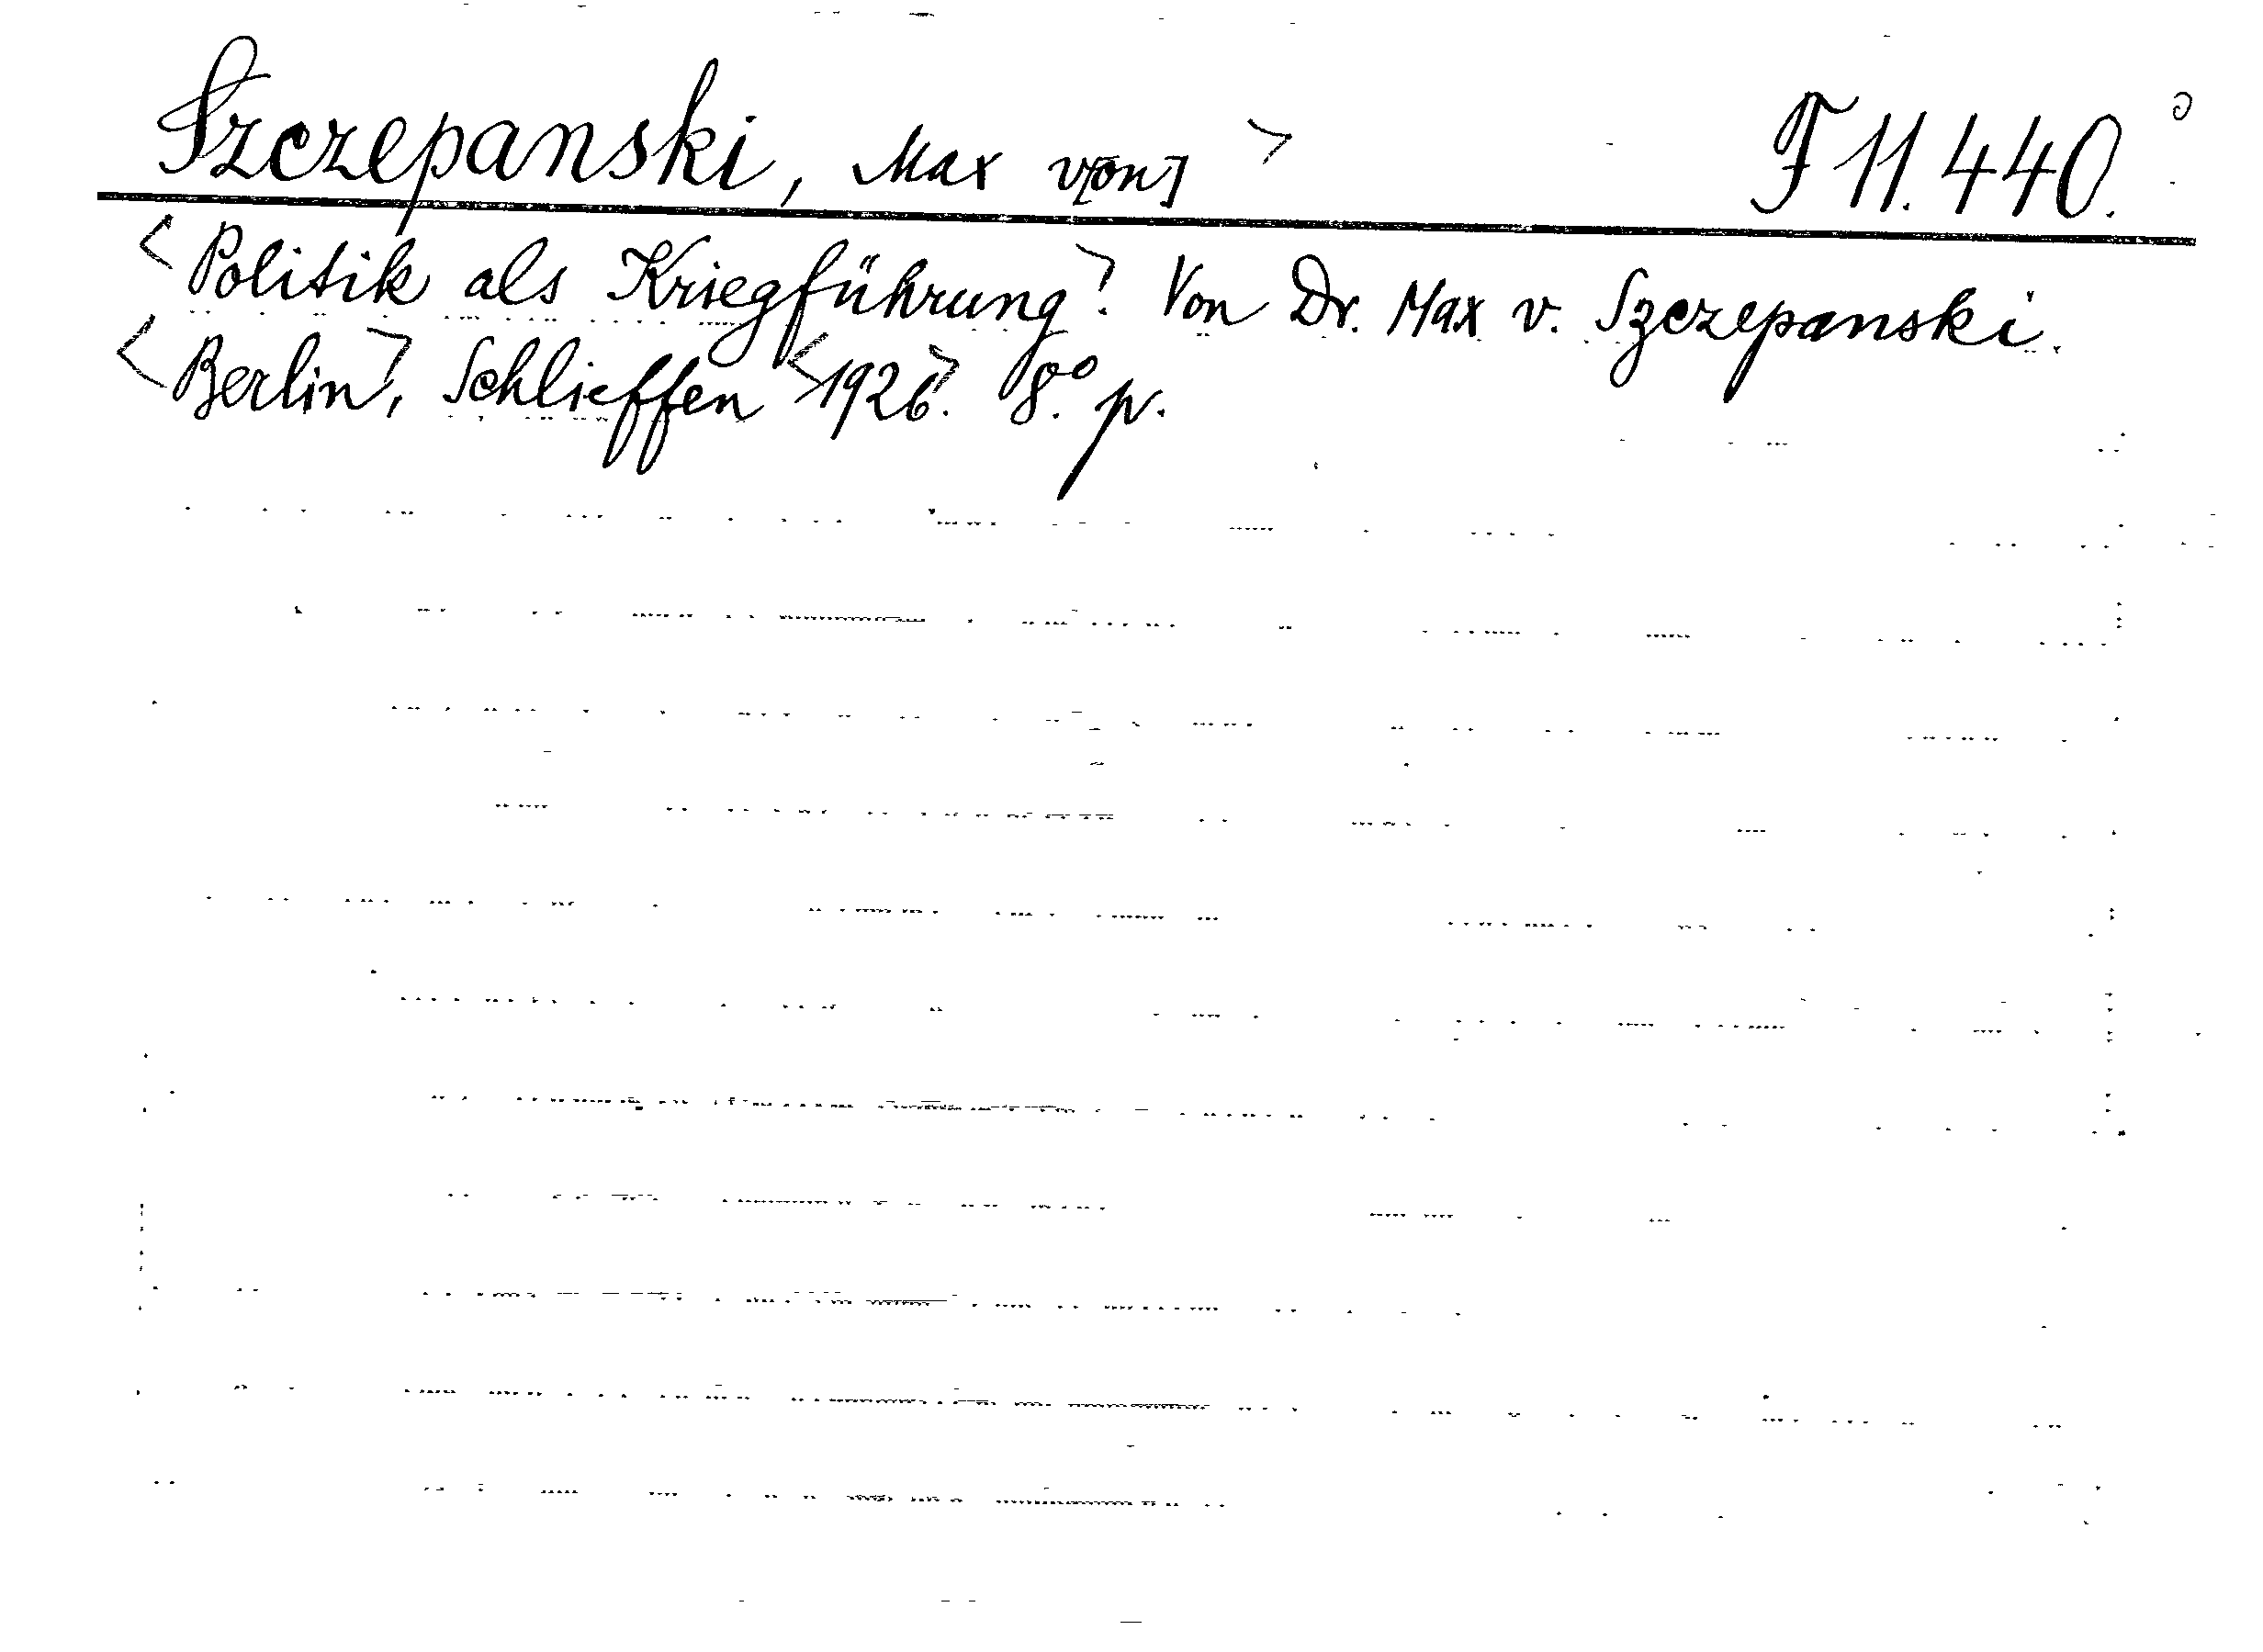 Szczepanski, Max v[on] > F 11.440.
<Politik als Kriegführung>. Von Dr. Max v. Szczepanski.
<Berlin>, Schlieffen <1926>. 8.° p.